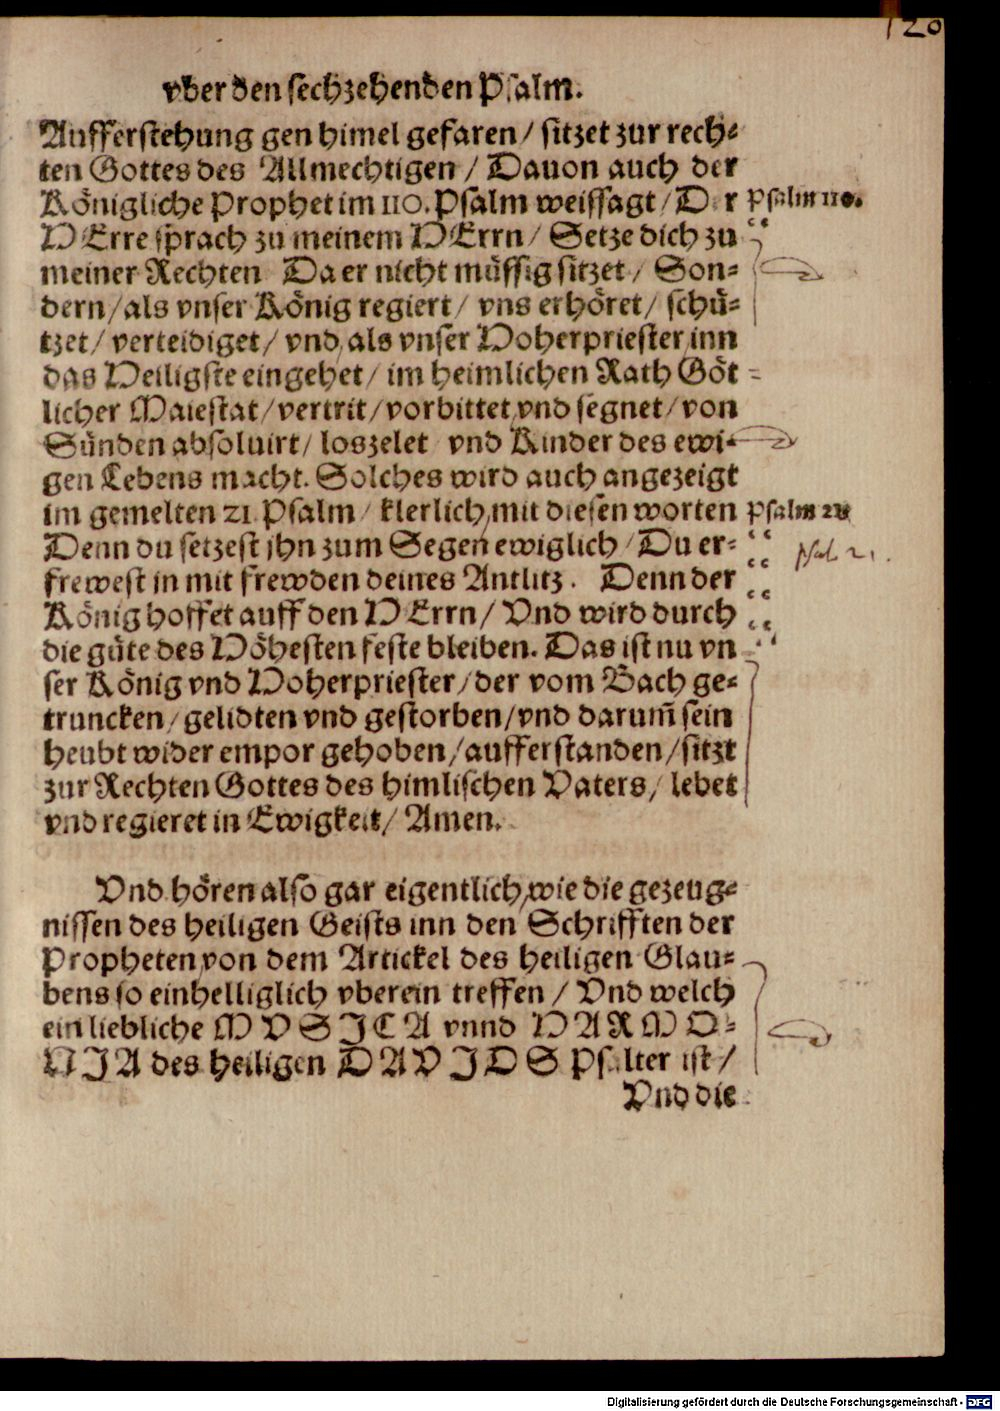 120
vber den sechzehenden Psalm.
Aufferstehung gen himel gefaren / sitzet zur rech⸗
ten Gottes des Allmechtigen / Dauon auch der
Königliche Prophet im 110. Psalm weissagt / Der
Psalm 110.
HErre sprach zu meinem HErrn / Setze dich zu
meiner Rechten Da er nicht müssig sitzet / Son⸗
dern / als vnser König regiert / vns erhöret / schü⸗
tzet / verteidiget / vnd als vnser Hoherpriester inn
das Heiligste eingehet / im heimlichen Rath Göt⸗
licher Maiestat / vertrit / vorbittet vnd segnet / von
Sünden absoluirt / loszelet vnd Kinder des ewi⸗
gen Lebens macht. Solches wird auch angezeigt
im gemelten 21. Psalm / klerlich mit diesen worten
Psalm 21
Denn du setzest jhn zum Segen ewiglich / Du er⸗
Psal. 21.
frewest in mit frewden deines Antlitz. Denn der
König hoffet auff den HErrn / Vnd wird durch
die güte des Höhesten feste bleiben. Das ist nu vn
ser König vnd Hoherpriester / der vom Bach ge⸗
truncken / gelidten vnd gestorben / vnd darum̄ sein
heubt wider empor gehoben / aufferstanden / sitzt
zur Rechten Gottes des himlischen Vaters / lebet
vnd regieret in Ewigkeit / Amen.
Vnd hören also gar eigentlich, wie die gezeug⸗
nissen des heiligen Geists inn den Schrifften der
Propheten von dem Artickel des heiligen Glau⸗
bens so einhelliglich vberein treffen / Vnd welch
ein liebliche MVSJCA vnnd HARMO⸗
NJA des heiligen DAVJDS Psalter ist /
Vnd die
Digitalisierung gefördert durch die Deutsche Forschungsgemeinschaft - DFG